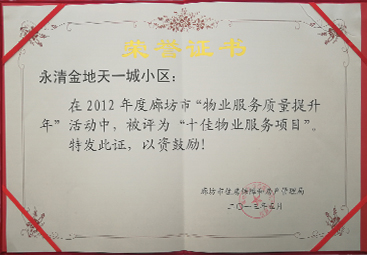 荣誉证书
永清金地天一城小区：
在2012年度廊坊市“物业服务质量提升
年”活动中，被评为“十佳物业服务项目”。
特发此证，以资鼓励！
廊坊市住房保障和房产管理局
二〇一三年五月